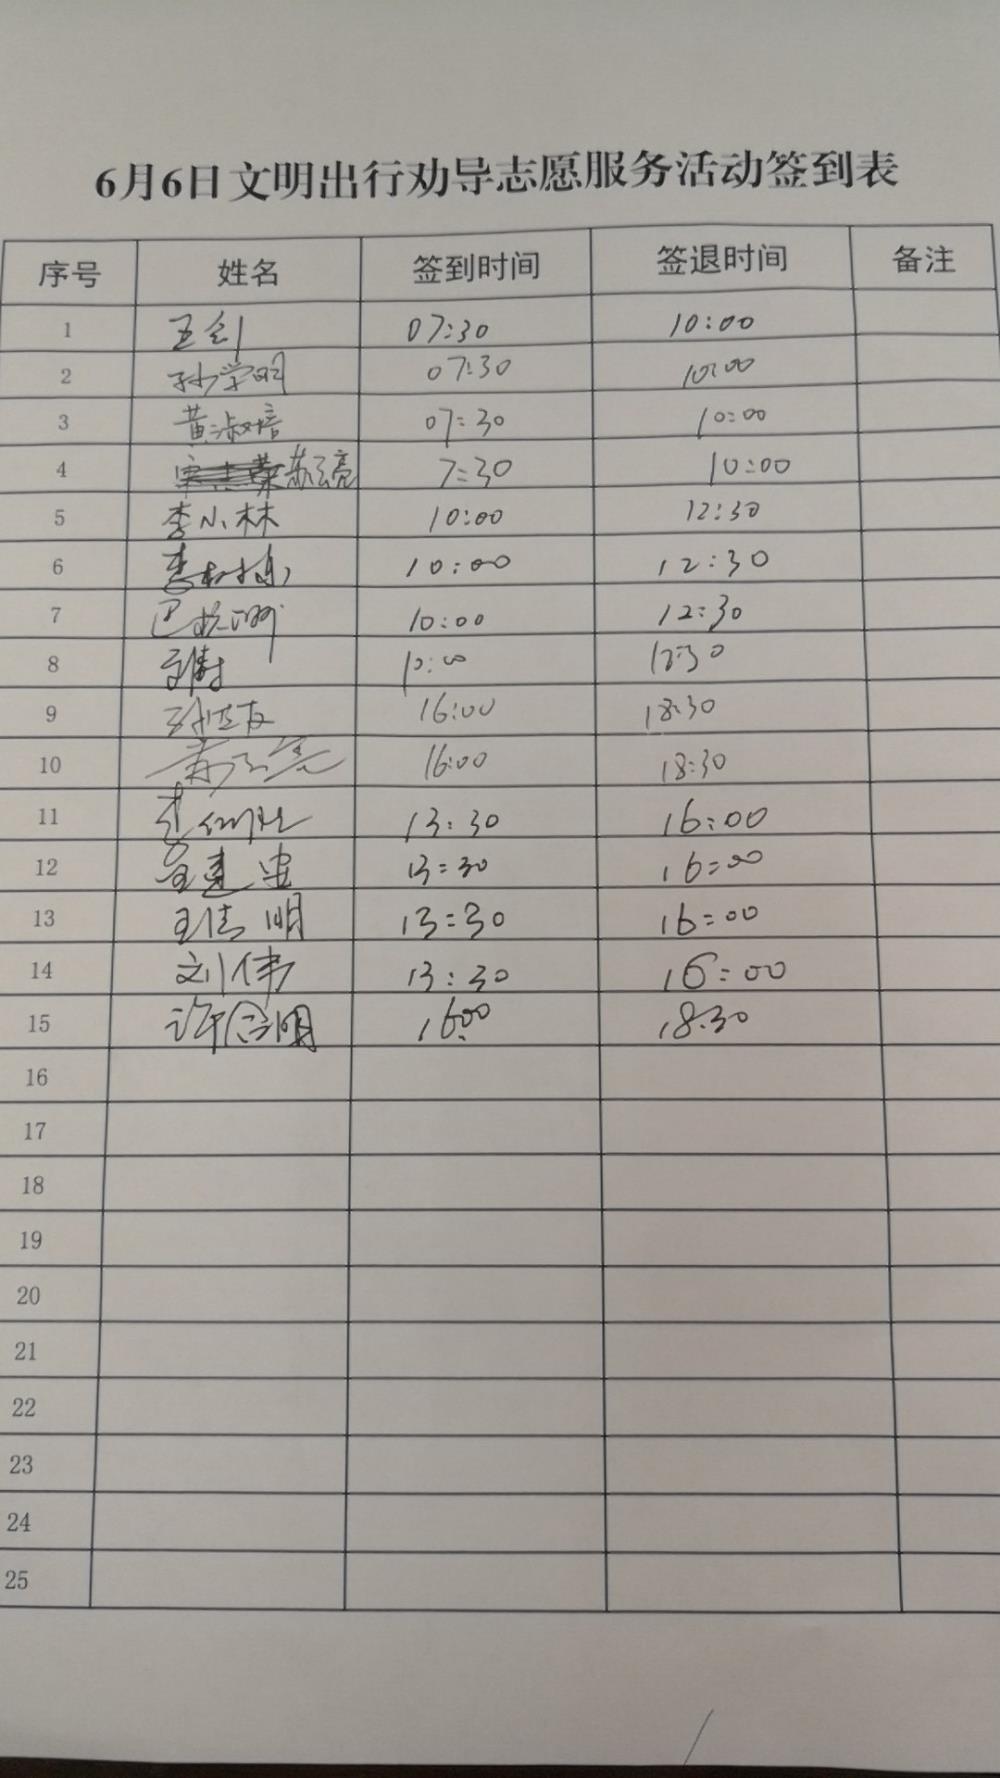 6月6日文明出行劝导志愿服务活动签到表
序号 姓名 签到时间 签退时间 备注
1 王剑 07:30 10:00
2 孙学明 07:30 10:00
3 黄淑培 07:30 10:00
4 苏云亮 7:30 10:00
5 李小林 10:00 12:30
6 10:00 12:30
7 10:00 12:30
8 10:00 12:30
9 16:00 18:30
10 16:00 18:30
11 13:30 16:00
12 13:30 16:00
13 王清明 13:30 16:00
14 刘伟 13:30 16:00
15 16:00 18:30
16
17
18
19
20
21
22
23
24
25